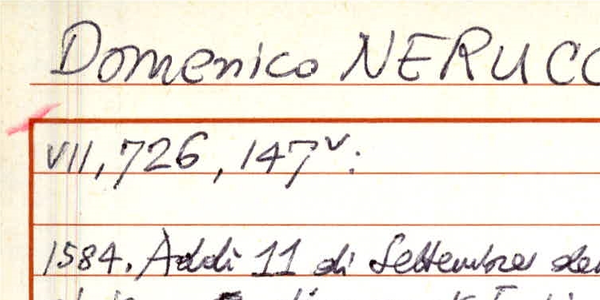 Domenico NERUCC
VII, 726, 147v:
1584. Addì 11 di Settembre